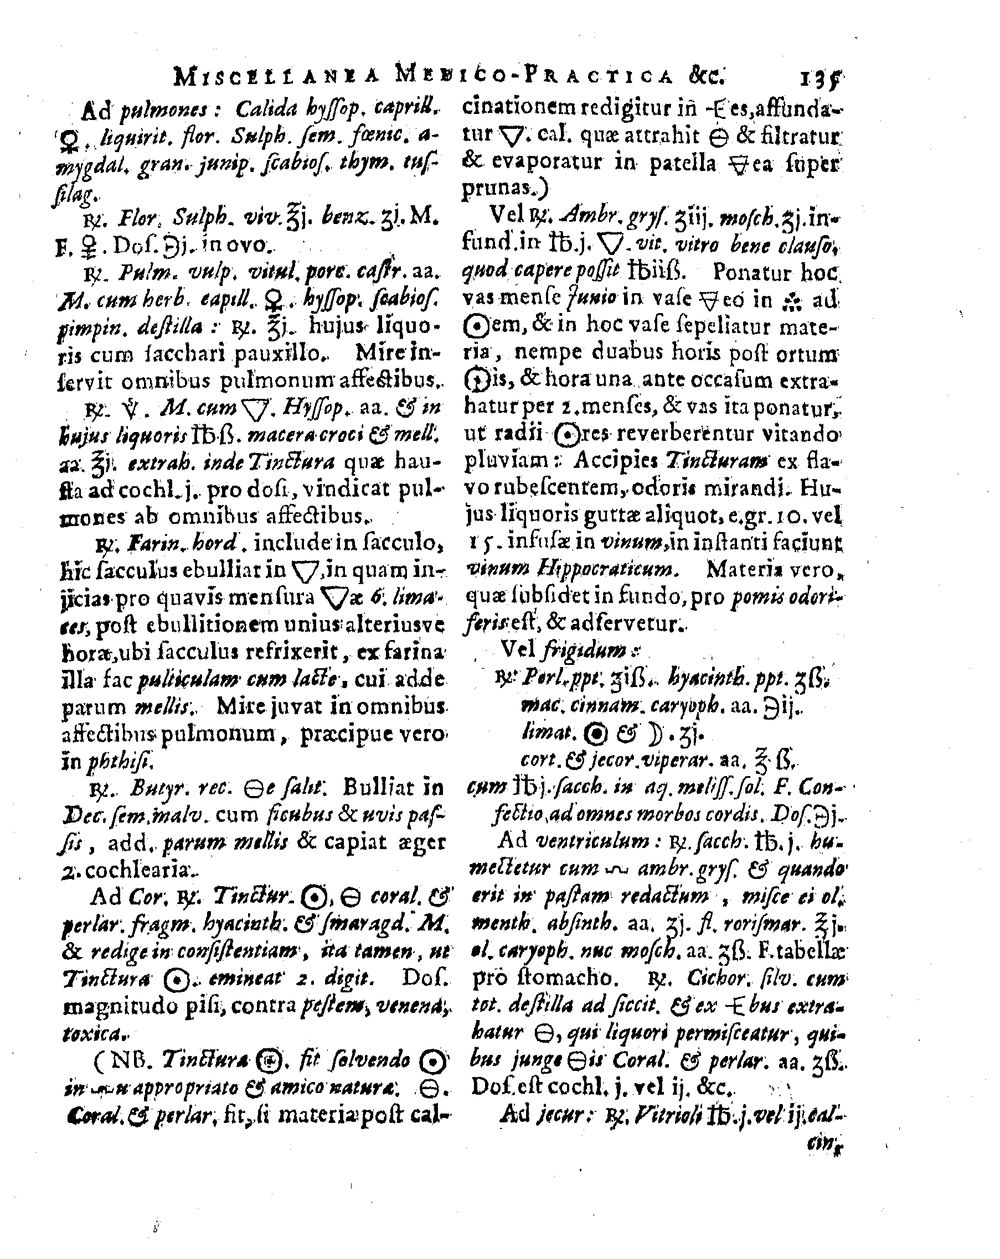 MISCELLANEA MEDICO-PRACTICA &c. 135
Ad pulmones: Calida hyſſop. caprill.
♀. liquirit. flor. Sulph. ſem. fœnic. a-
mygdal. gran. junip. ſcabioſ. thym. tuſ-
ſilag.
℞. Flor. Sulph. viv. ℥j. benz. ʒj. M.
F. ☿. Doſ. ℈j. in ovo.
℞. Pulm. vulp. vitul. porc. caſtr. aa.
M. cum herb. capill. ♀. hyſſop. ſcabioſ.
pimpin. deſtilla: ℞. ℥j. hujus liquo-
ris cum ſacchari pauxillo. Mire in-
ſervit omnibus pulmonum affectibus.
℞. M. cum 🜄. Hyſſop. aa. & in
hujus liquoris ℔.ß. macera croci & mell.
aa. ℥j. extrah. inde Tinctura quæ hau-
ſta ad cochl. j. pro doſi, vindicat pul-
mones ab omnibus affectibus.
℞. Farin. hord. include in ſacculo,
hic ſacculus ebulliat in 🜄, in quam in-
jicias pro quavis menſura 🜄æ 6. lima-
ces, poſt ebullitionem unius alteriusve
horæ, ubi ſacculus refrixerit, ex farina
illa fac pulticulam cum lacte, cui adde
parum mellis. Mire juvat in omnibus
affectibus pulmonum, præcipue vero
in phthiſi.
℞. Butyr. rec. 🜔e ſalit. Bulliat in
Dec. ſem. malv. cum ficubus & uvis paſ-
ſis, add. parum mellis & capiat æger
2. cochlearia.
Ad Cor. ℞. Tinctur. ☉, 🜔 coral. &
perlar. fragm. hyacinth. & ſmaragd. M.
& redige in conſiſtentiam, ita tamen, ut
Tinctura ☉. emineat 2. digit. Doſ.
magnitudo piſi, contra peſtem, venena,
toxica.
(NB. Tinctura ☉. fit ſolvendo ☉
in appropriato & amico naturæ. 🜔.
Coral. & perlar. fit, ſi materia poſt cal-
cinationem redigitur in es, affunda-
tur 🜄. cal. quæ attrahit 🜔 & filtratur
& evaporatur in patella 🜃ea ſuper
prunas.)
Vel ℞. Ambr. gryſ. ʒiij. moſch. ʒj. in-
fund. in ℔.j. 🜄. vit. vitro bene clauſo,
quod capere poſſit ℔iiß. Ponatur hoc
vas menſe Junio in vaſe 🜃eo in ad
☉em, & in hoc vaſe ſepeliatur mate-
ria, nempe duabus horis poſt ortum
☉is, & hora una ante occaſum extra-
hatur per 2. menſes, & vas ita ponatur,
ut radii ☉res reverberentur vitando
pluviam: Accipies Tincturam ex fla-
vo rubeſcentem, odoris mirandi. Hu-
jus liquoris guttæ aliquot, e.gr. 10. vel
15. infuſæ in vinum, in inſtanti faciunt
vinum Hippocraticum. Materia vero,
quæ ſubſidet in fundo, pro pomis odori-
feris eſt, & adſervetur.
Vel frigidum:
℞. Perl. ppt. ʒiß. hyacinth. ppt. ʒß.
mac. cinnam. caryoph. aa. ℈ij.
limat. ☉ & ☽. ʒj.
cort. & jecor. viperar. aa. ℥ß.
cum ℔j. ſacch. in aq. meliſſ. ſol. F. Con-
fectio, ad omnes morbos cordis. Doſ. ℈j.
Ad ventriculum: ℞. ſacch. ℔.j. hu-
mectetur cum ambr. gryſ. & quando
erit in paſtam redactum, miſce ei ol.
menth. abſinth. aa. ʒj. fl. roriſmar. ℥j.
ol. caryoph. nuc moſch. aa. ʒß. F. tabellæ
pro ſtomacho. ℞. Cichor. ſilv. cum
tot. deſtilla ad ſiccit. & ex bus extra-
hatur 🜔, qui liquori permiſceatur, qui-
bus junge 🜔is Coral. & perlar. aa. ʒß.
Doſ. eſt cochl. j. vel ij. &c.
Ad jecur: ℞. Vitrioli ℔.j. vel ij. cal-
cin